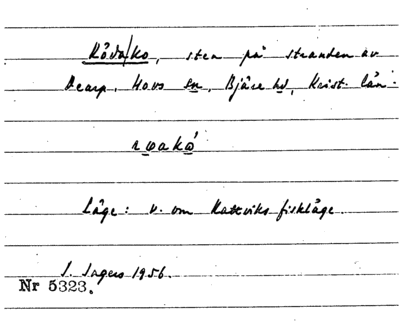 Råda/ko, sten på stranden av
Dearp, Hovs sn, Bjäre hd, Krist. län.
Läge: v. om Kattviks fiskläge.
I. Ingers 1956.
Nr 5323.